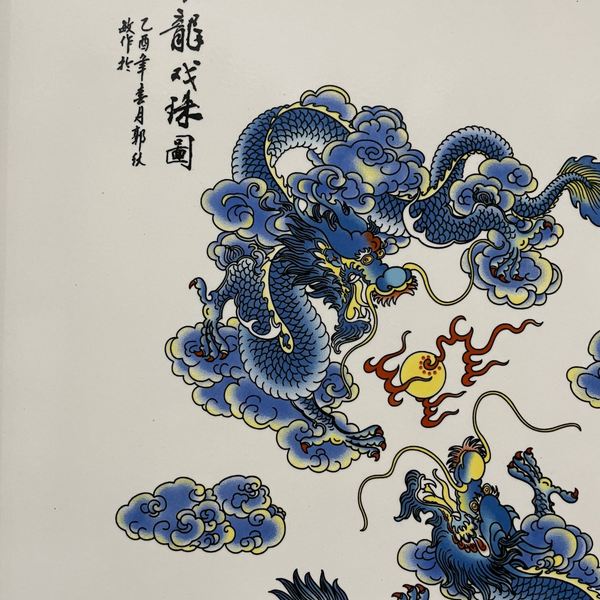 龍戏珠圖
乙酉年春月郭紋
敏作於